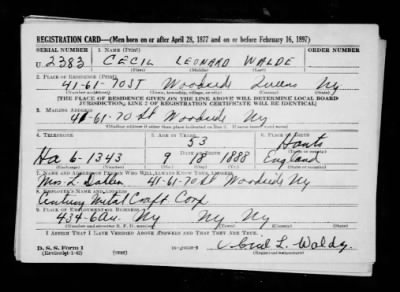 REGISTRATION CARD—(Men born on or after April 28, 1877 and on or before February 16, 1897)
SERIAL NUMBER 1. NAME (Print) ORDER NUMBER
U 2383 CECIL LEONARD WALDE
(First) (Middle) (Last)
2. PLACE OF RESIDENCE (Print)
41-61-70 ST Woodside Queens Ny
(Number and street) (Town, township, village, or city) (County) (State)
[THE PLACE OF RESIDENCE GIVEN ON THE LINE ABOVE WILL DETERMINE LOCAL BOARD
JURISDICTION; LINE 2 OF REGISTRATION CERTIFICATE WILL BE IDENTICAL]
3. MAILING ADDRESS
41-61-70 St Woodside Ny
(Mailing address if other than place indicated on line 2. If same insert word same)
4. TELEPHONE 5. AGE IN YEARS 6. PLACE OF BIRTH
53 Hants
DATE OF BIRTH
Ha 6-1343 9 18 1888 England
(Exchange) (Number) (Mo.) (Day) (Yr.) (State or country)
7. NAME AND ADDRESS OF PERSON WHO WILL ALWAYS KNOW YOUR ADDRESS
Mrs L. 41-61-70 St Woodside Ny
8. EMPLOYER'S NAME AND ADDRESS
Century Metal Craft Corp
9. PLACE OF EMPLOYMENT OR BUSINESS
434-6 Av. Ny Ny Ny
(Number and street or R. F. D. number) (Town) (County) (State)
I AFFIRM THAT I HAVE VERIFIED ABOVE ANSWERS AND THAT THEY ARE TRUE.
D. S. S. Form 1
(Revised 4-1-42) (over) Cecil L. Walde
(Registrant's signature)